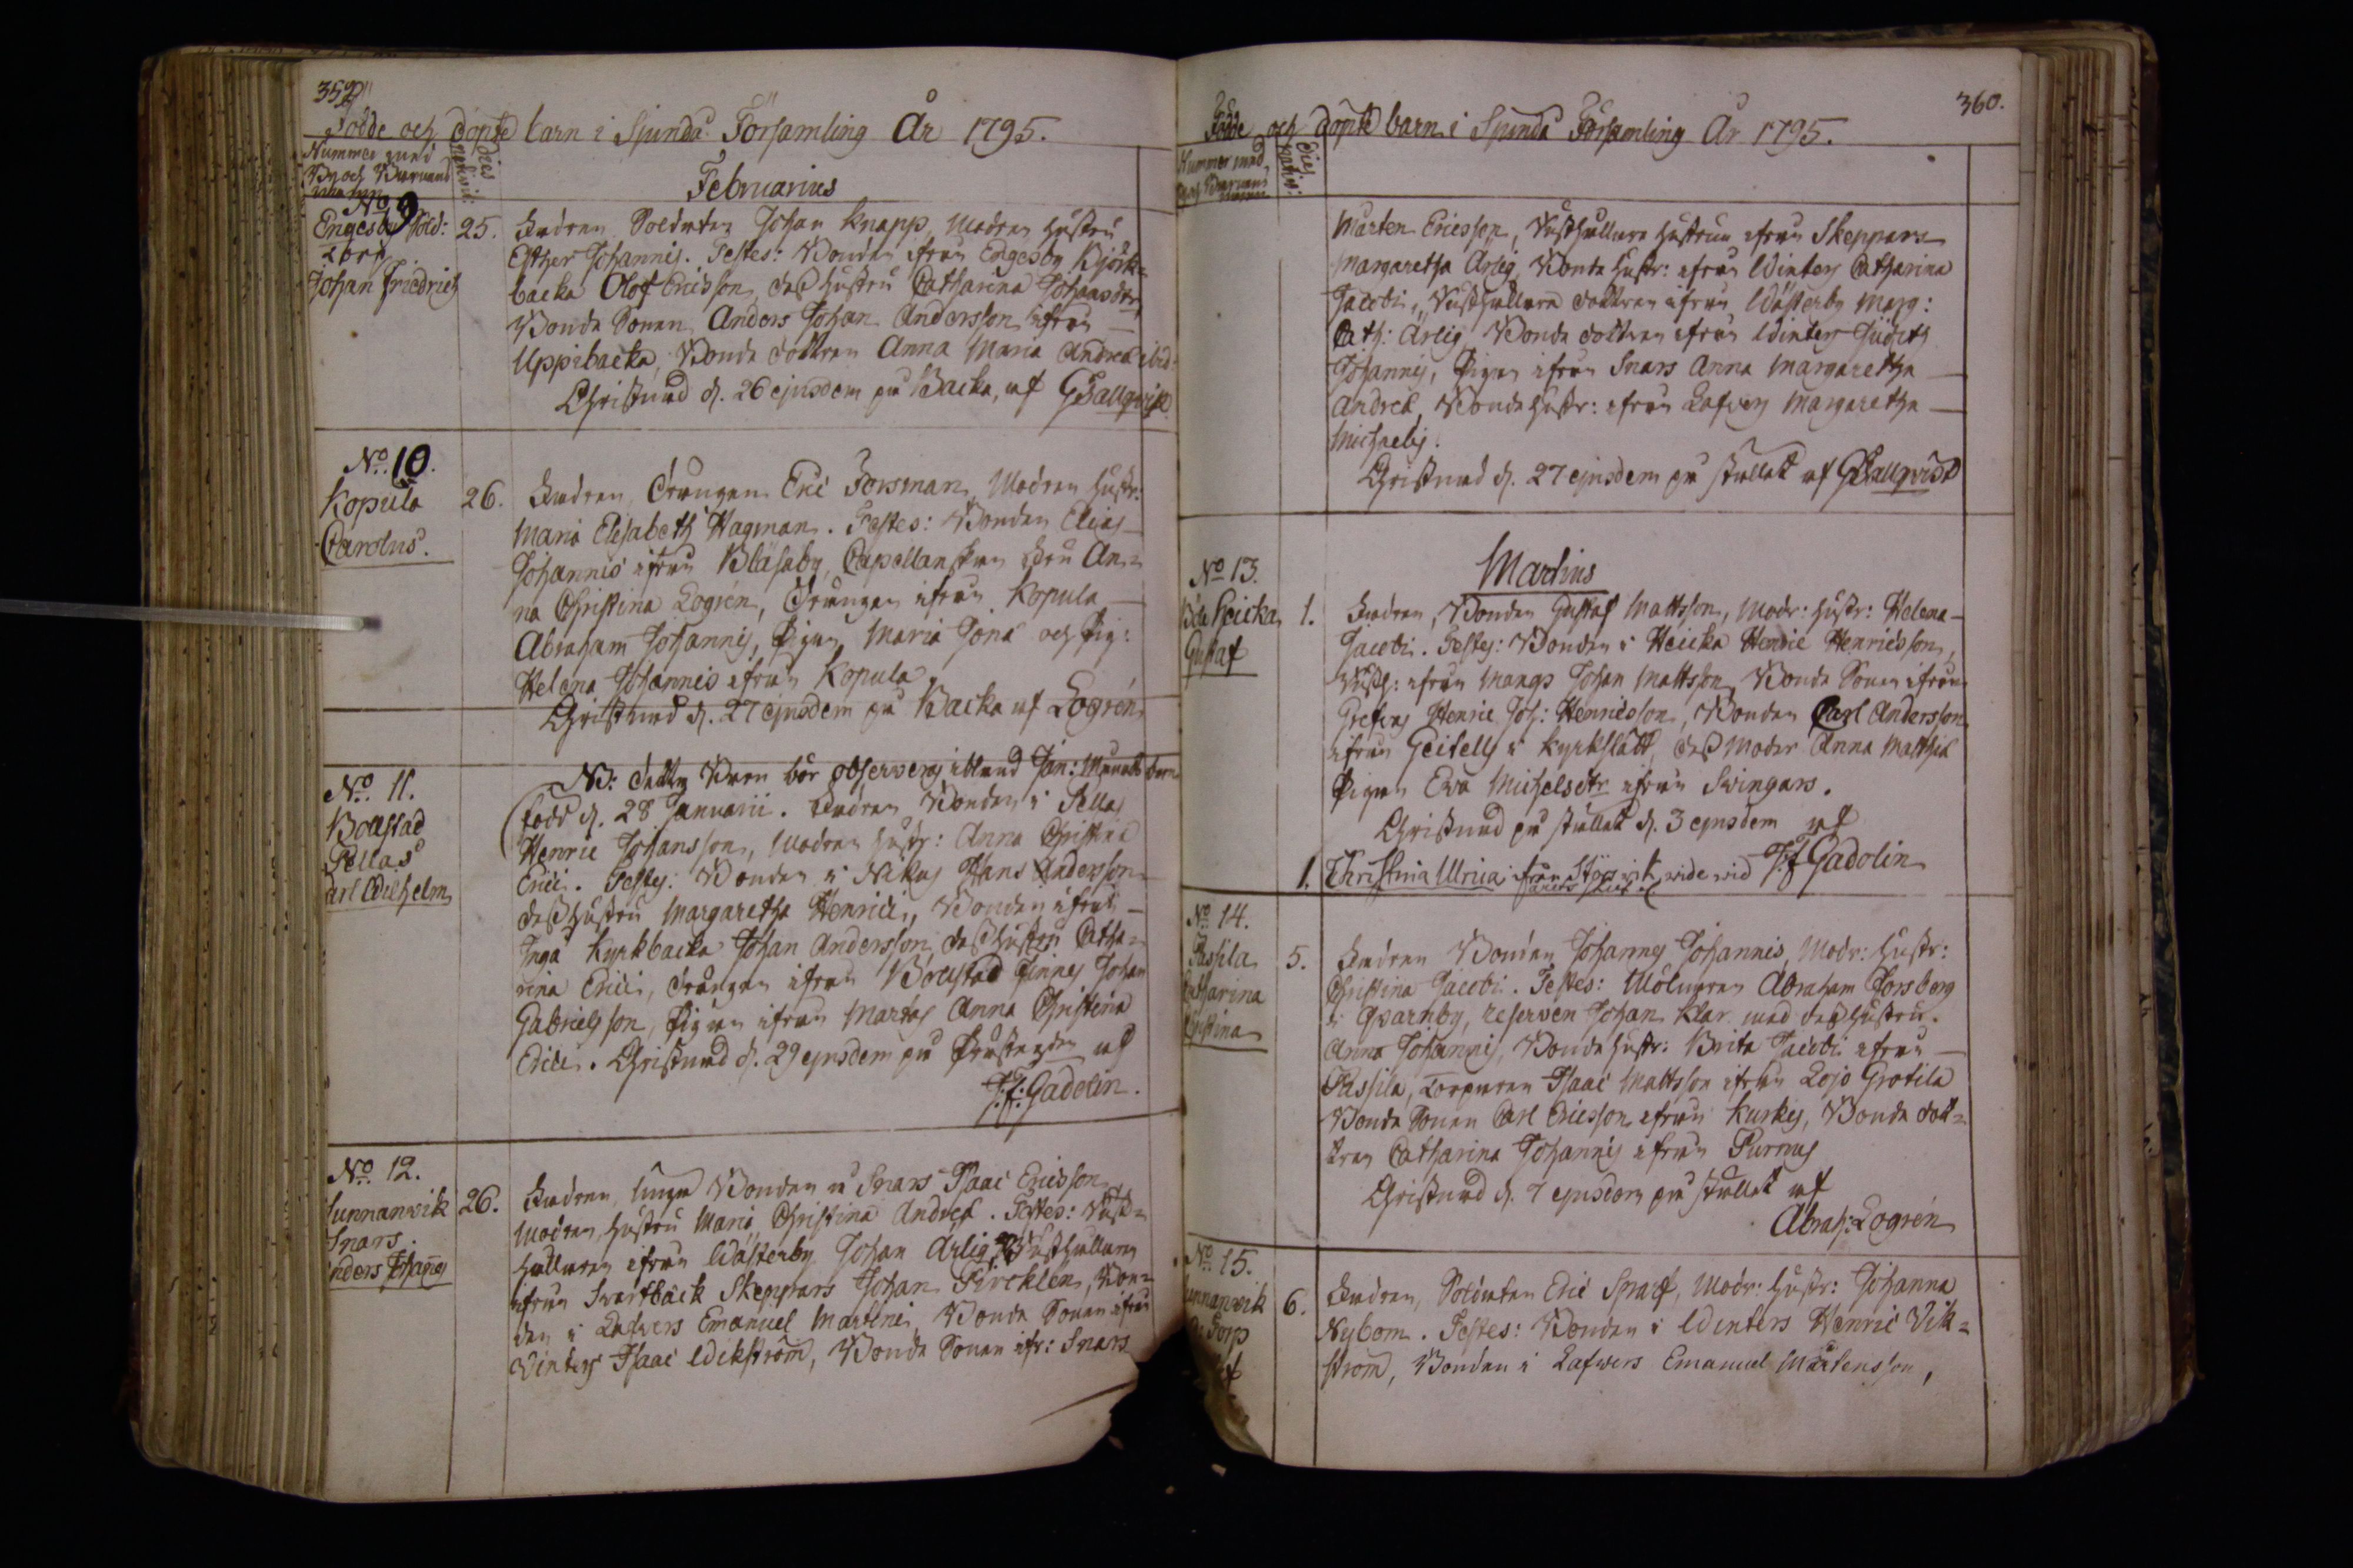 359
Födde och döpte barn i Sjundå Församling År 1795.
Nummer med
By och Barnens
namn
dies
nativit:
Februarius
No 9
Engesby Sold:
Torp
Johan Friedrich
25.
Fadren Soldaten Johan Knapp, Modren Hustru
Esther Johannis. Testes: Bonden ifrån Engesby Björk=
backa Olof Ericsson, dess hustru Catharina Johansdtr,
Bonde Sonen Anders Johan Andersson ifrån
Uppibacka, Bonde dottren Anna Maria Andreæ ibid:
Christnad d. 26 ejusdem på Backa, af G Sallqvist
No. 10.
Kopula
Carolus.
26.
Fadren, Drängen Eric Forsman, Modren hustr:
Maria Elisabeth Hagman. Testes: Bonden Elias
Johannis ifrån Blåsaby, Capellanskan Fru An=
na Christina Logrén, Drängen ifrån Kopula
Abraham Johannis, Pigan Maria Jonæ och Pig:
Helena Johannis ifrån Kopula
Christnad d. 27 ejusdem på Backa af Logrén
No. 11.
Bollstad
Pellas
Carl Wilhelm
NB: detta Barn bör observeras ibland Jan: Månads barn
(född d. 28 Januarii. Fadren Bonden i Pellas
Henric Johansson, Modren hustr: Anna Christina
Erici. Testes: Bonden i Nekus Hans Andersson
dess hustru Margaretha Henrici, Bonden ifrån
Ingå Kyrkbacka Johan Andersson, dess hustru Catha=
rina Erici, drängen ifrån Bollstad Finnes Johan
Gabrielsson, Pigan ifrån Martas Anna Christina
Erici. Christnad d. 29 ejusdem på Prästegden af
J:F: Gadolin.
No. 12.
Sunnanwik
Snars.
Anders Johannes
26.
Fadren, unga Bonden å Snars Isaac Ericsson
Modren, hustru Maria Christina Andreæ. Testes: Rust=
hållaren ifrån Wästerby Johan Arlig, Rusthållaren
ifrån Svartbäck Skeppars Johan Fircklén, Bon=
den i Lafvers Emanuel Martini, Bonde Sonen ifrån
Winters Isaac Wikström, Bonde Sonen ifr: Snars
360.
Födde och döpte barn i Sjundå Församling År 1795.
Nummer med
By och Barnens
namn
dies
nativ:
Mårten Ericsson, Rusthållare hustrun ifrån Skeppars
Margaretha Arlig, Bonde hustr: ifrån Winters Catharina
Jacobi, Rusthållare dottren ifrån Wästerby Marg:
Cath: Arlig, Bonde dottren ifrån Winters Judith
Johannis, Pigan ifrån Snars Anna Margaretha
Andreæ, Bonde hustr: ifrån Lafvers Margaretha
Michaelis.
Christnad d. 27 ejusdem på stället af G Sallqvist
Martius
No 13.
Heicka
Gustaf
1.
Fadren, Bonden Gustaf Mattsson, Modr: hustr: Helena
Jacobi. Testes: Bonden i Heicka Henric Henricsson,
Rusth: ifrån Mangs Johan Mattsson, Bonde Sonen ifrån
Grefvas Henric Joh: Henricsson, Bonden Carl Andersson
ifrån Geitells i Kyrkslätt, dess Moder Anna Matthiæ
Pigan Eva Michelsdtr ifrån Swingars.
Christnad på stället d. 3 ejusdem af
J:F Gadolin
1. Christina Ulrica ifrån Störswik, wide wid
årets slut
No 14.
Passila
Catharina
Christina
5.
Fadren Bonden Johannes Johannis, Modr: hustr:
Christina Jacobi. Testes: Mölnaren Abraham Forsberg
i Qvarnby, reserven Johan Klar med dess hustru.
Anna Johannis, Bonde hustr: Brita Jacobi ifrån
Passila, Torparen Isaac Mattsson ifrån Lojo Grotila
Bonde Sonen Carl Ericsson ifrån Kurkis, Bonde dot=
tren Catharina Johannis ifrån Purnus
Christnad d. 7 ejusdem på stället af
Abrah: Logrén
No 15.
Sunnanwik
Torp
6.
Fadren, Soldaten Eric Sparf, Modr: hustr: Johanna
Nybom. Testes: Bonden i Winters Henric Vik=
ström, Bonden i Lafvers Emanuel Mårtensson,